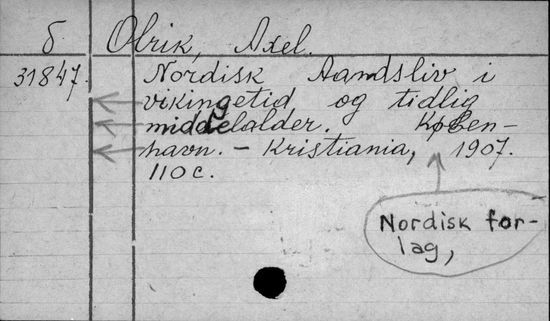 б Olrik, Axel.
31847. Nordisk Aandsliv i
vikingetid og tidlig
middelalder. Køben-
havn. – Kristiania, 1907.
110 с.
Nordisk for-
lag,